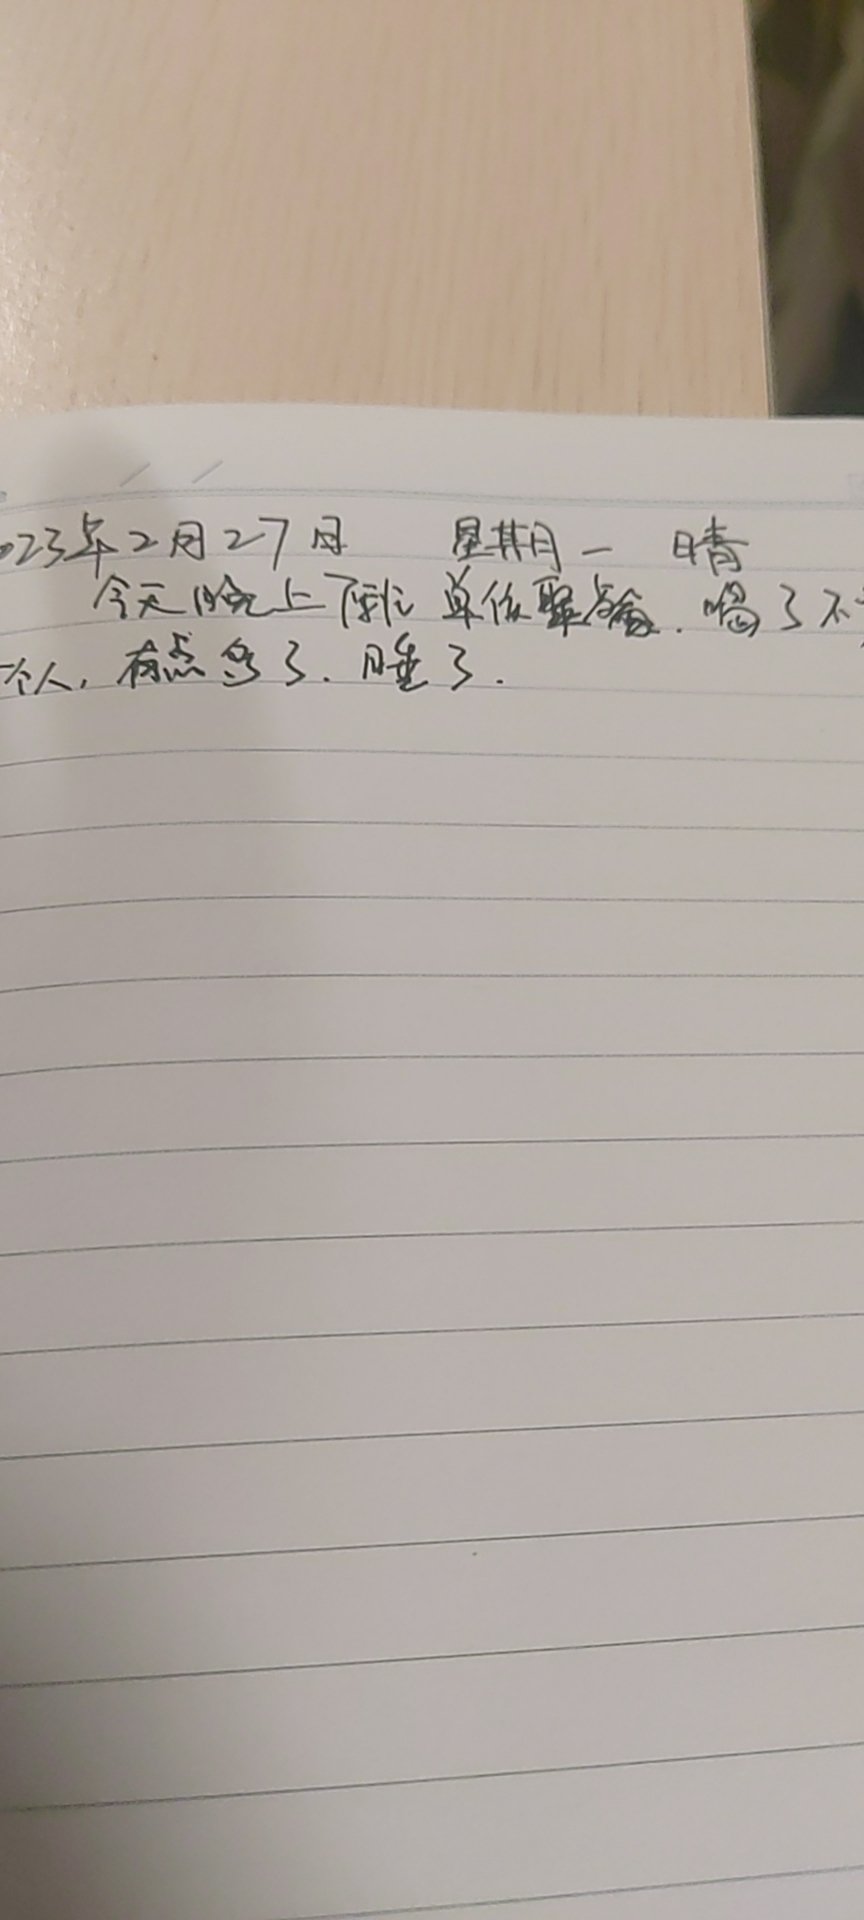 023年2月27日 星期一 晴
今天晚上下班 单位聚餐.喝了不
个人,有点多了.睡了.